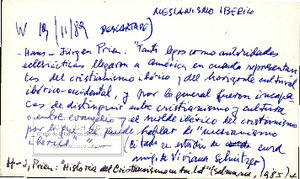 MESIANISMO IBERICO
W 19/11/89 DESCARTADO
- Hans-Jürgen Prien: "Tanto los como autoridades
eclesiásticas llegaron a América en cuanto representan
tes del cristianismo ibérico y del horizonte cultural
ibérico-occidental, y por lo general fueron incapa
ces de distinguir entre cristianismo y cultura
entre evangelio y el molde ibérico del cristianismo
por lo que se puede hablar de "mesianismo
citado en estudio de
de Viviana Schnitzer
H-J. Prien: "Historia del Cristianismo en Am. Lat" (Salamanca, 1985)